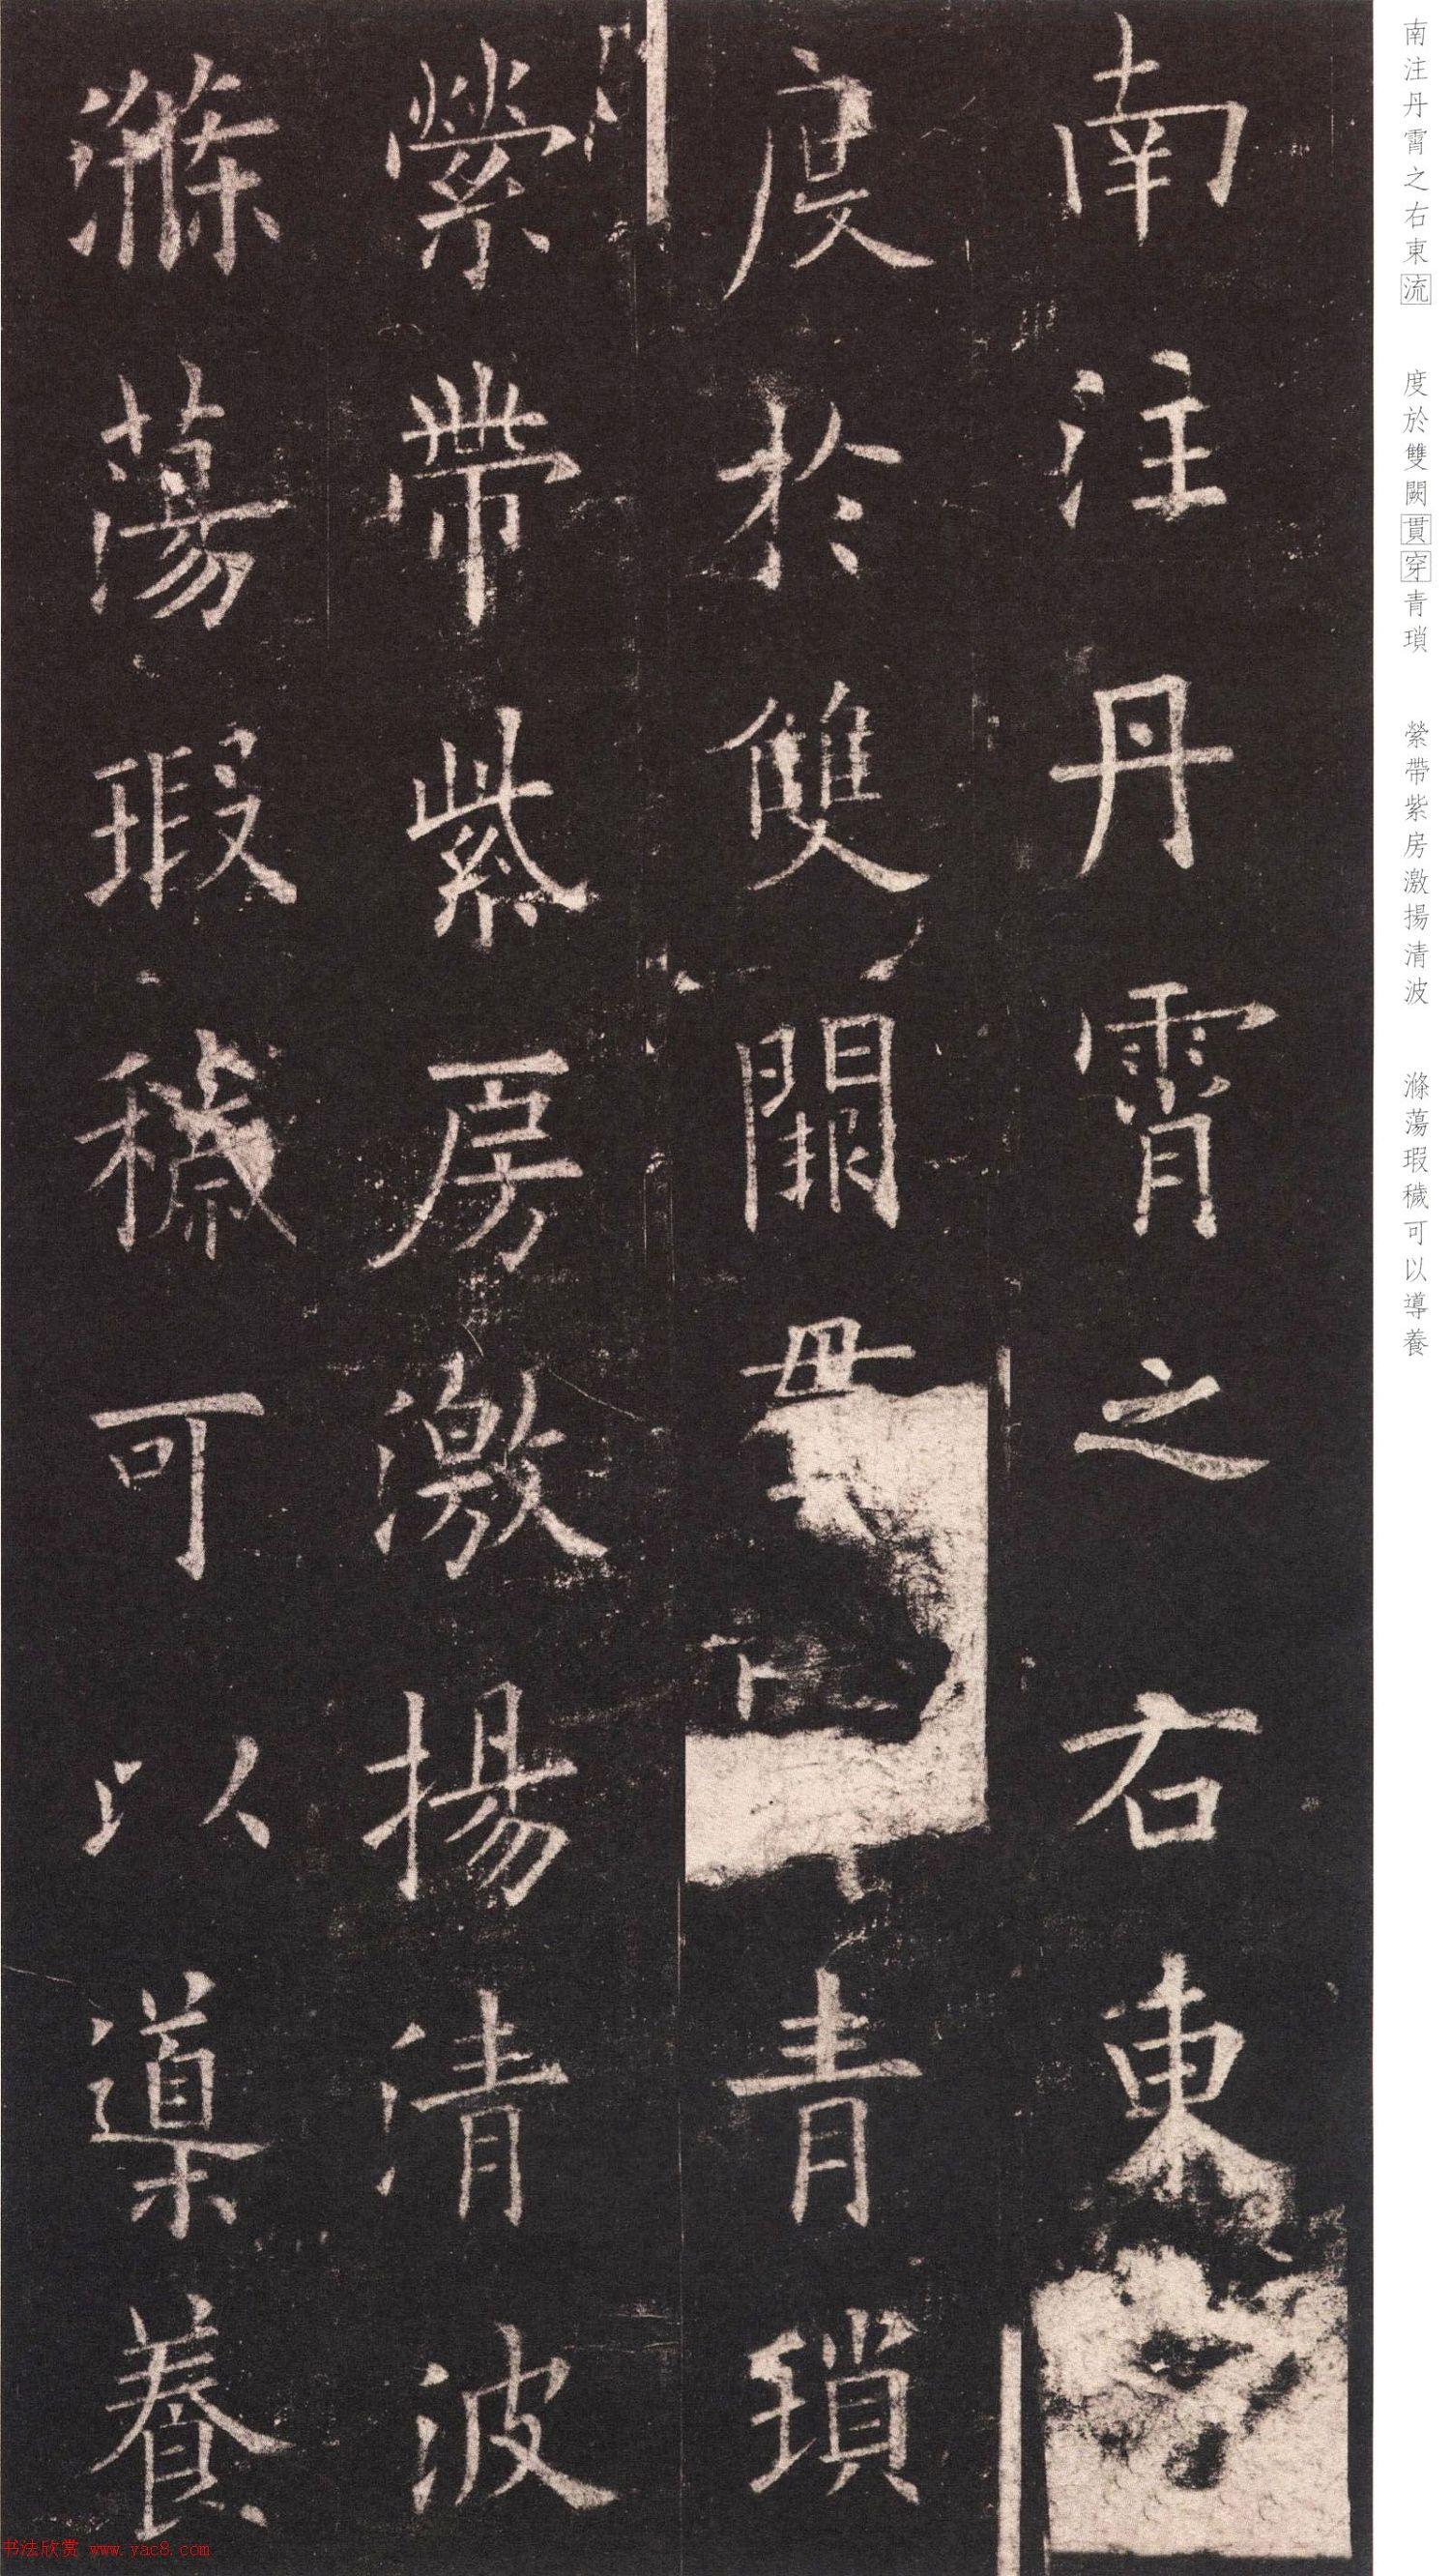 南注丹霄之右東
度於雙闕貫青瑣
縈帶紫房激揚清波
滌蕩瑕穢可以導養
南注丹霄之右東流
度於雙闕貫穿青瑣
縈帶紫房激揚清波
滌蕩瑕穢可以導養
书法欣赏 www.yac8.com